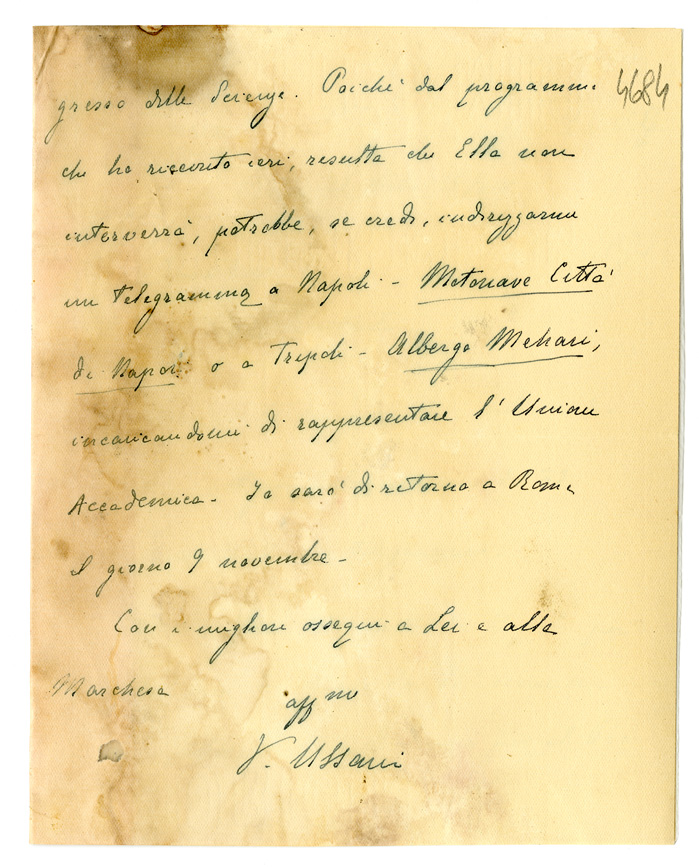 gresso delle Scienze. Poiché dal programma
4684
che ho ricevuto ieri, risulta che Ella non
interverrà, potrebbe, se crede, indirizzarmi
un telegramma a Napoli - Motonave Città
di Napoli o a Tripoli - Albergo Mehari,
incaricandomi di rappresentare l'Unione
Accademica. Io sarò di ritorno a Roma
il giorno 9 novembre -
Con i migliori ossequi a Lei e alla
Marchesa
aff mo
V. Ussani